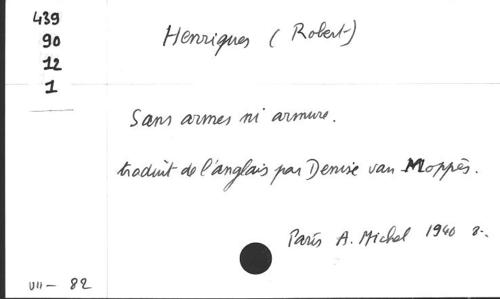 439
90
12
1
Henriques (Robert)
Sans armes ni armure.
traduit de l'anglais par Denise van Moppès.
Paris A. Michel 1940 8°.
VII - 82